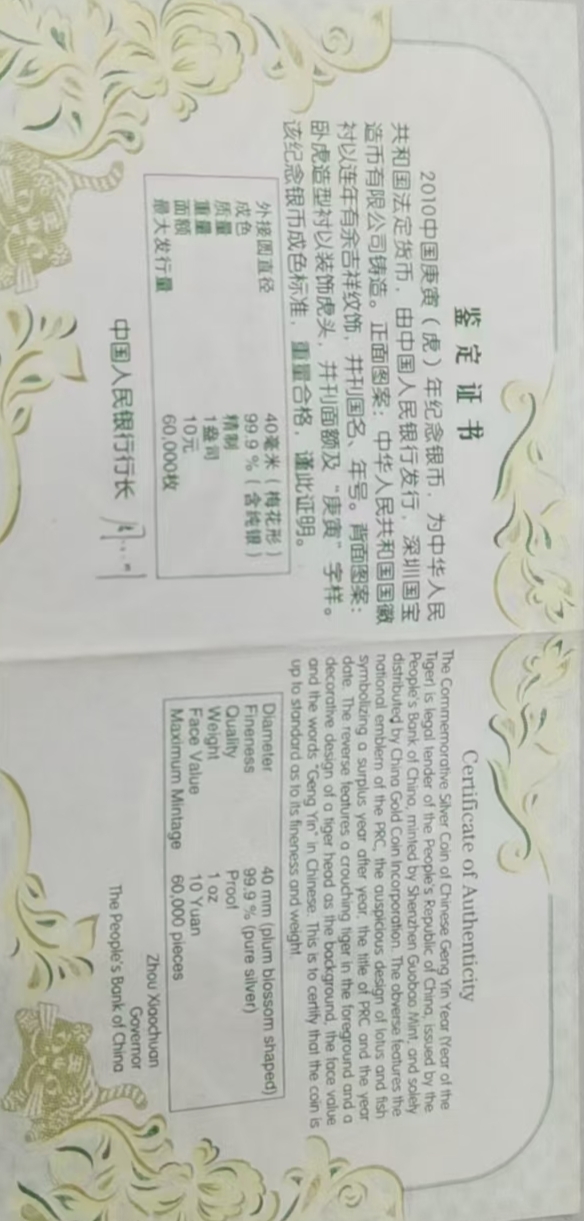 鉴定证书
2010中国庚寅（虎）年纪念银币，为中华人民
共和国法定货币，由中国人民银行发行，深圳国宝
造币有限公司铸造。正面图案：中华人民共和国国徽
衬以连年有余吉祥纹饰，并刊国名、年号。背面图案：
卧虎造型衬以装饰虎头，并刊面额及“庚寅”字样。
该纪念银币成色标准，重量合格，谨此证明。
外接圆直径 40毫米（梅花形）
成色 99.9％（含纯银）
质量 精制
重量 1盎司
面额 10元
最大发行量 60,000枚
中国人民银行行长
Certificate of Authenticity
The Commemorative Silver Coin of Chinese Geng Yin Year (Year of the
Tiger) is legal tender of the People's Republic of China, issued by the
People's Bank of China, minted by Shenzhen Guobao Mint, and solely
distributed by China Gold Coin Incorporation. The obverse features the
national emblem of the PRC, the auspicious design of lotus and fish
symbolizing a surplus year after year, the title of PRC and the year
date. The reverse features a crouching tiger in the foreground and a
decorative design of a tiger head as the background, the face value
and the words "Geng Yin" in Chinese. This is to certify that the coin is
up to standard as to its fineness and weight.
Diameter 40 mm (plum blossom shaped)
Fineness 99.9 % (pure silver)
Quality Proof
Weight 1 oz
Face Value 10 Yuan
Maximum Mintage 60,000 pieces
Zhou Xiaochuan
Governor
The People's Bank of China